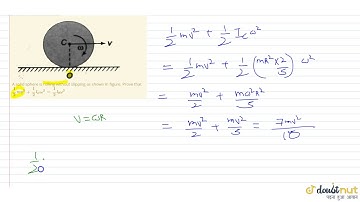 C
v
ω
A solid sphere is rolling without slipping as shown in figure. Prove that
1/2 mv² + 1/2 I_c ω²
= 1/2 mv² + 1/2 (mR² × 2/5) ω²
= mv²/2 + mω²R²/5
V = ωR
= mv²/2 + mv²/5 = 7mv²/10
1/20
doubtnut